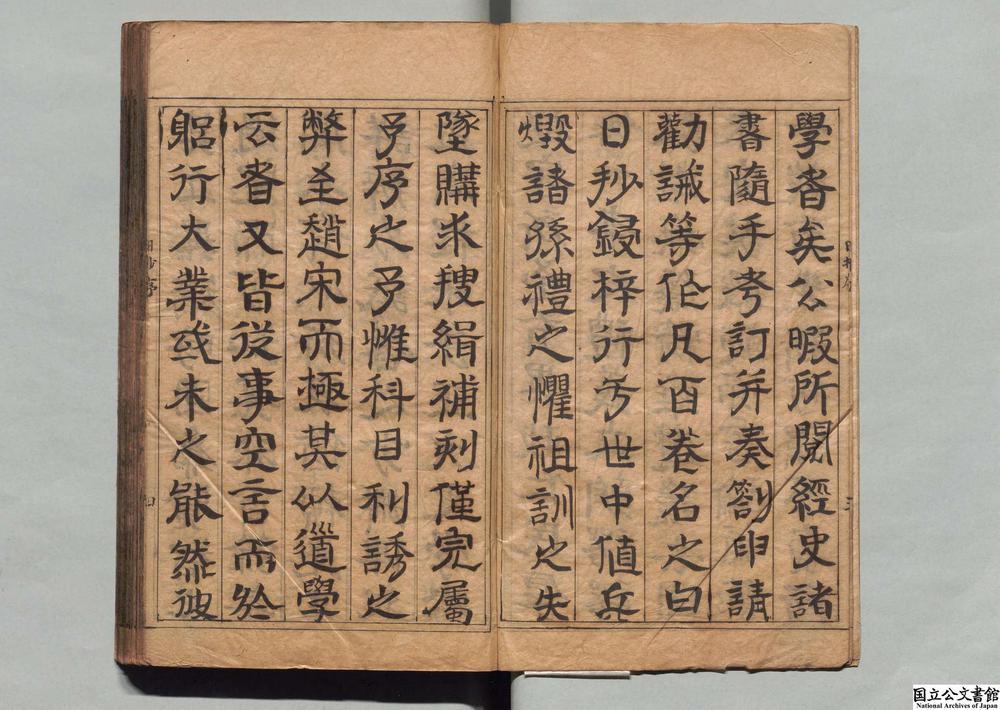 學者矣公暇所閱經史諸
書隨手考訂并奏劄申請
勸誡等作凡百卷名之曰
日抄鋟梓行于世中値兵
燬諸孫禮之懼祖訓之失
墜購求搜緝補刻僅完屬
予序之予惟科目利誘之
弊至趙宋而極其以道學
云者又皆從事空言而於
躬行大業或未之能然彼
日抄序
三
四
国立公文書館
National Archives of Japan